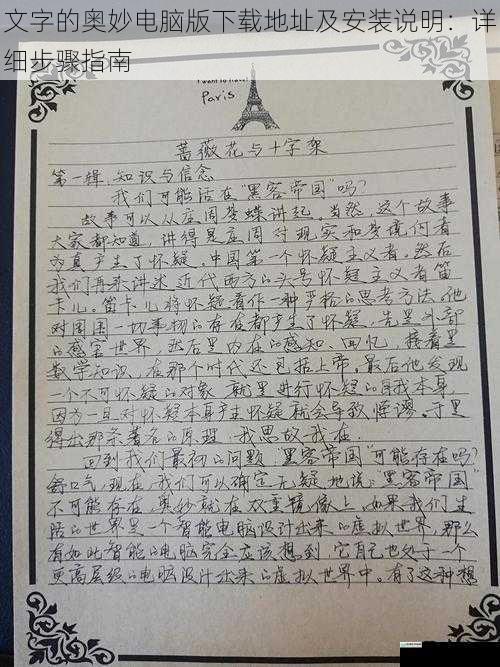 文字的奥妙电脑版下载地址及安装说明：详
细步骤指南
I want to travel
Paris
蔷薇花与十字架
第一辑 知识与信念
我们可能活在"黑客帝国"吗？
故事可以从庄周梦蝶讲起。当然，这个故事
大家都知道，讲得是庄周对现实和梦境何者
为真产生了怀疑，中国第一个怀疑主义者。然后
我们再来讲述近代西方的头号怀疑主义者笛
卡儿。笛卡儿将怀疑看作一种严格的思考方法。他
对周围一切事物的存在都产生了怀疑，先是外部
的感官世界，然后是内在的感知、回忆，接着是
数学知识，在那个时代还包括上帝。最后他发现
一个不可怀疑的对象，就是进行怀疑的自我本身，
因为一旦对怀疑本身产生怀疑就会导致悖谬。于是
得出那条著名的原理：我思故我在。
回到我们最初的问题"黑客帝国"可能存在吗？
舒口气，现在，我们可以确定无疑地说："黑客帝国"
不可能存在，奥妙就在双重镜像上，如果我们生
活的世界是一个智能电脑设计出来的虚拟世界，那么
有如此智能的电脑完全应该想到，它自己也处于一个
更高层级的电脑设计出来的虚拟世界中。有了这种想